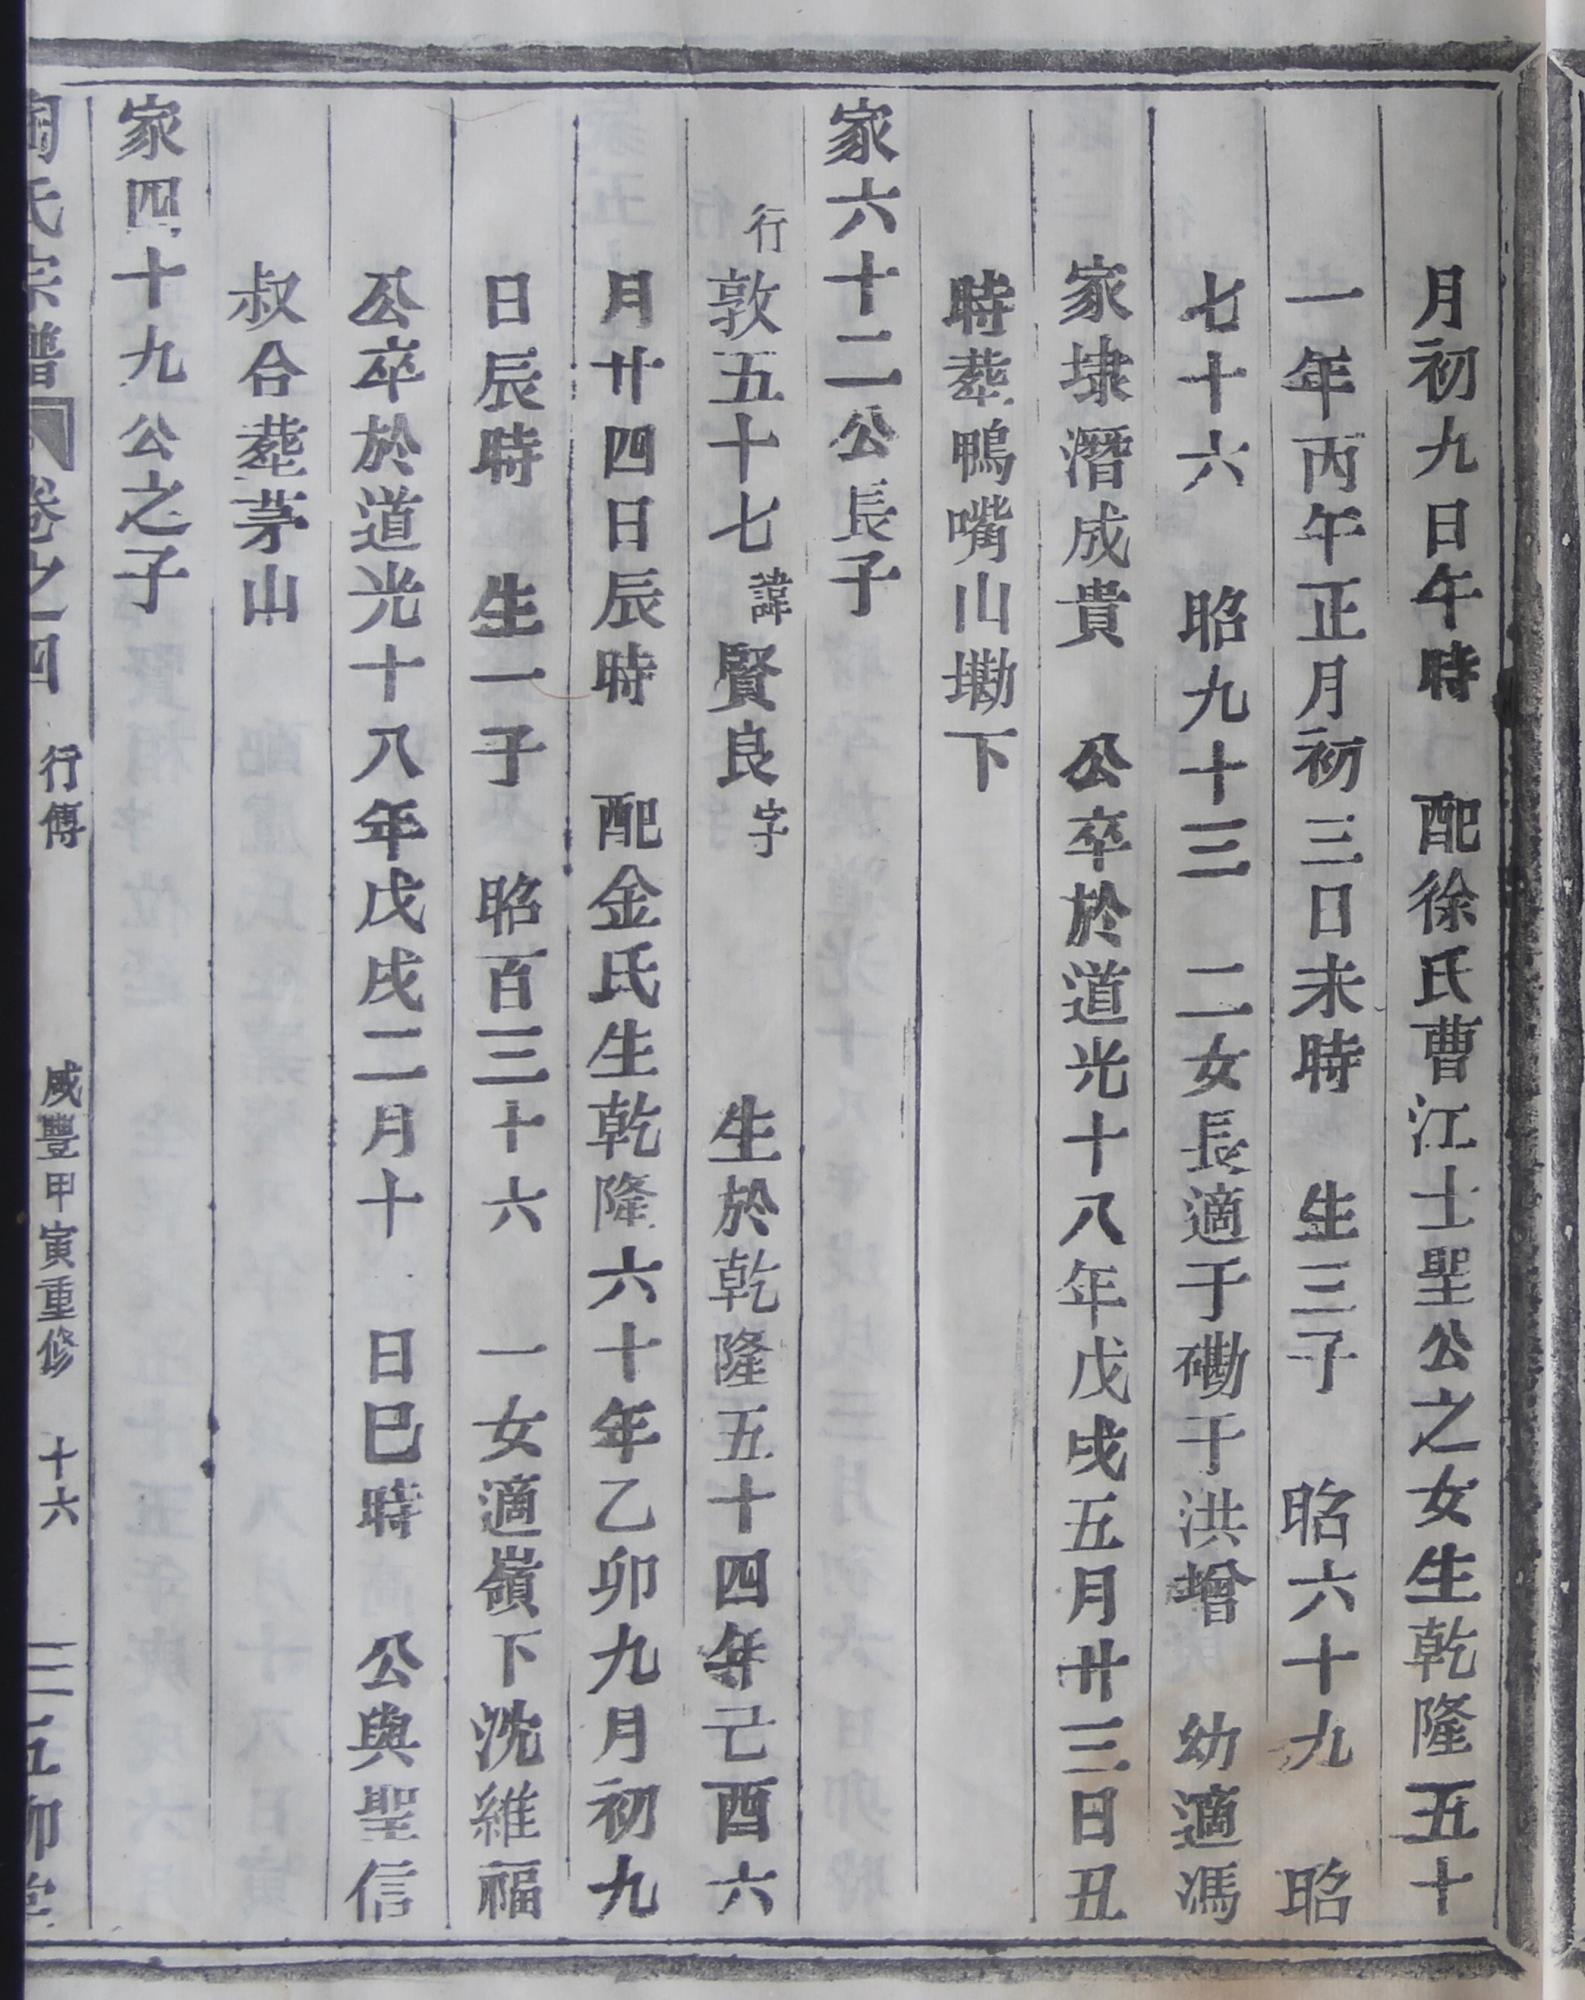 月初九日午時 配徐氏曹江士聖公之女生乾隆五十
一年丙午正月初三日未時 生三子 昭六十九 昭
七十六 昭九十三 二女長適于磡于洪增 幼適馮
家埭潛成貴 公卒於道光十八年戊戌五月廿三日丑
時葬鴨嘴山墈下
家六十二公長子
行敦五十七諱賢良字 生於乾隆五十四年己酉六
月廿四日辰時 配金氏生乾隆六十年乙卯九月初九
日辰時 生一子 昭百三十六 一女適嶺下沈維福
公卒於道光十八年戊戌二月十 日巳時 公與聖信
叔合葬茅山
家四十九公之子
陶氏宗譜 卷之四 行傳 咸豐甲寅重修 十六 五柳堂